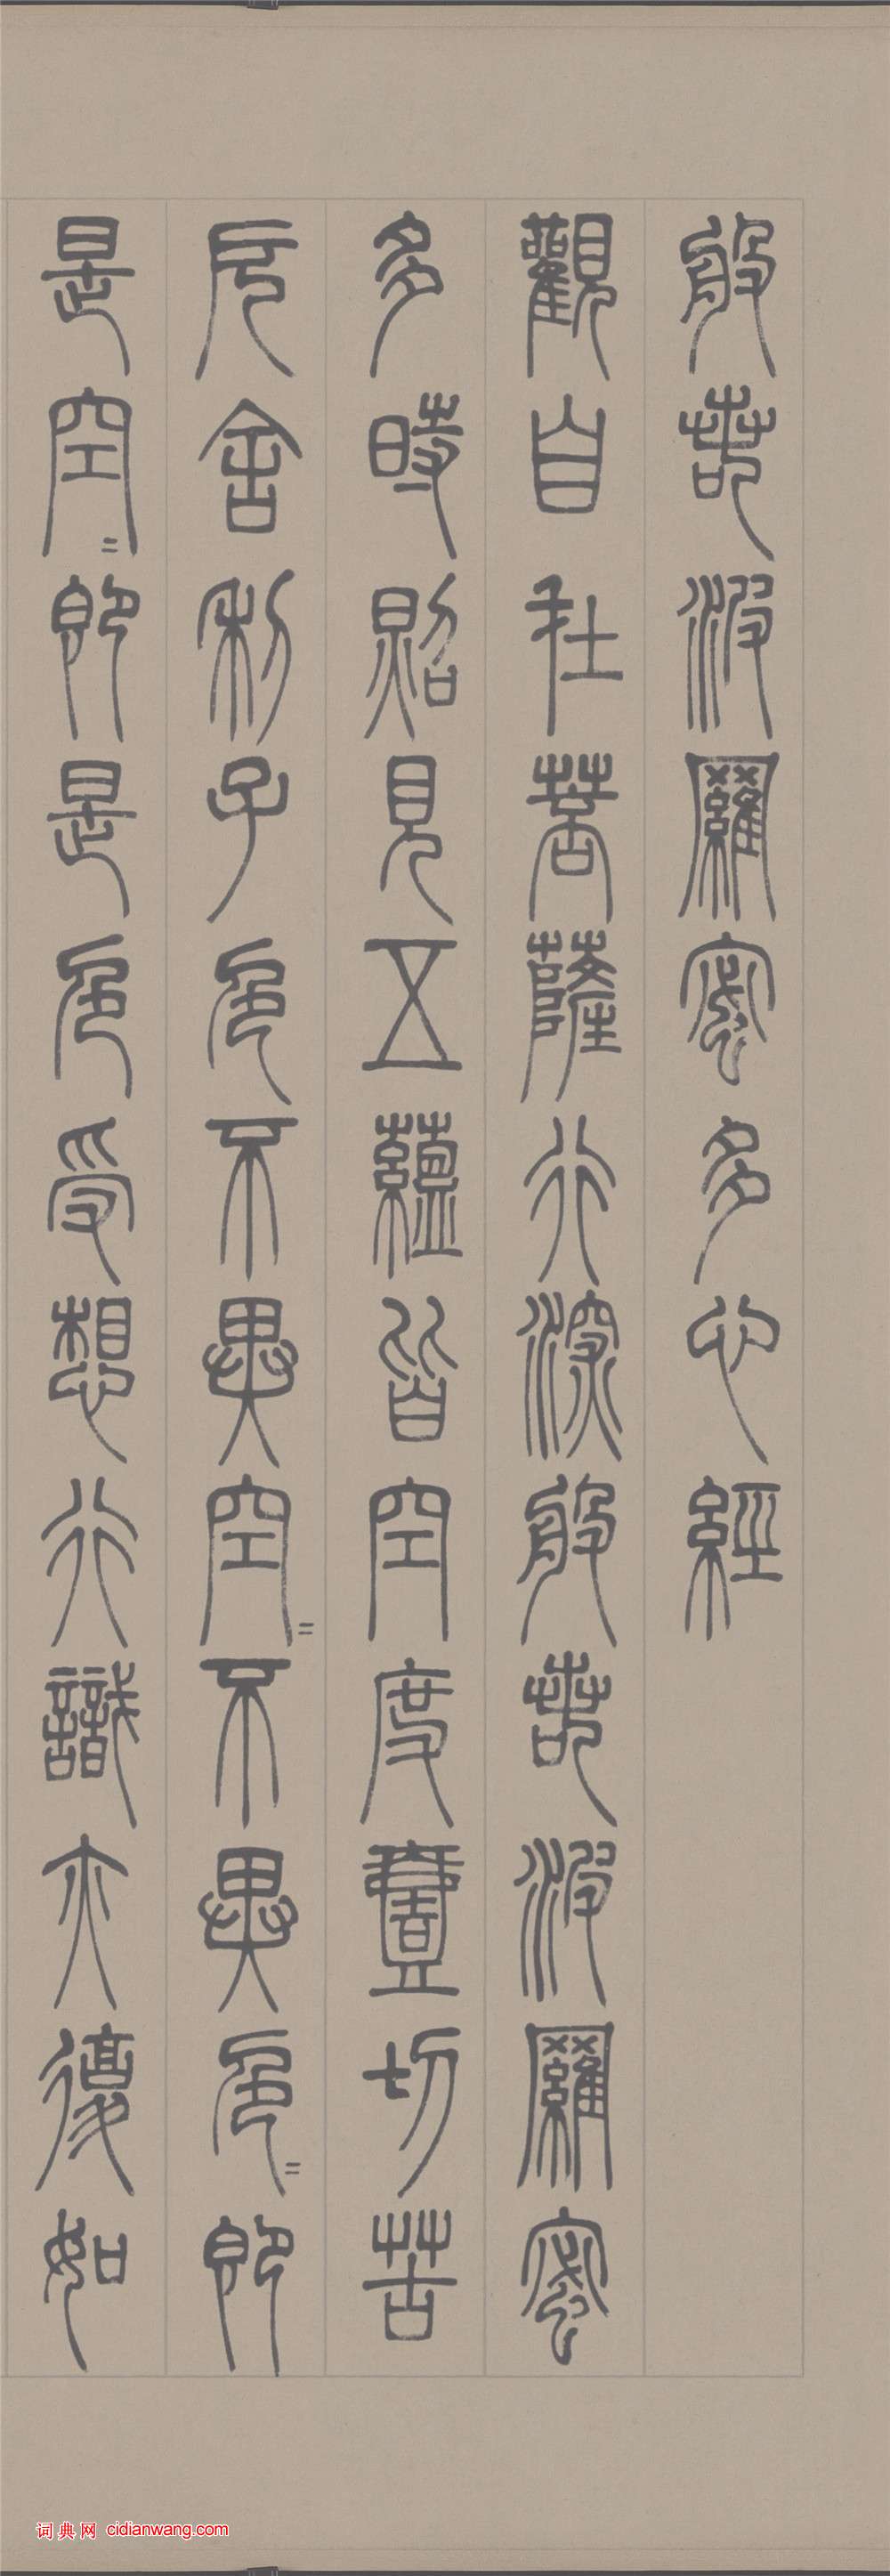 般若波羅蜜多心經
觀自在菩薩行深般若波羅蜜
多時照見五蘊皆空度壹切苦
厄舍利子色不異空〻不異色〻即
是空〻即是色受想行識亦復如
词典网 cidianwang.com